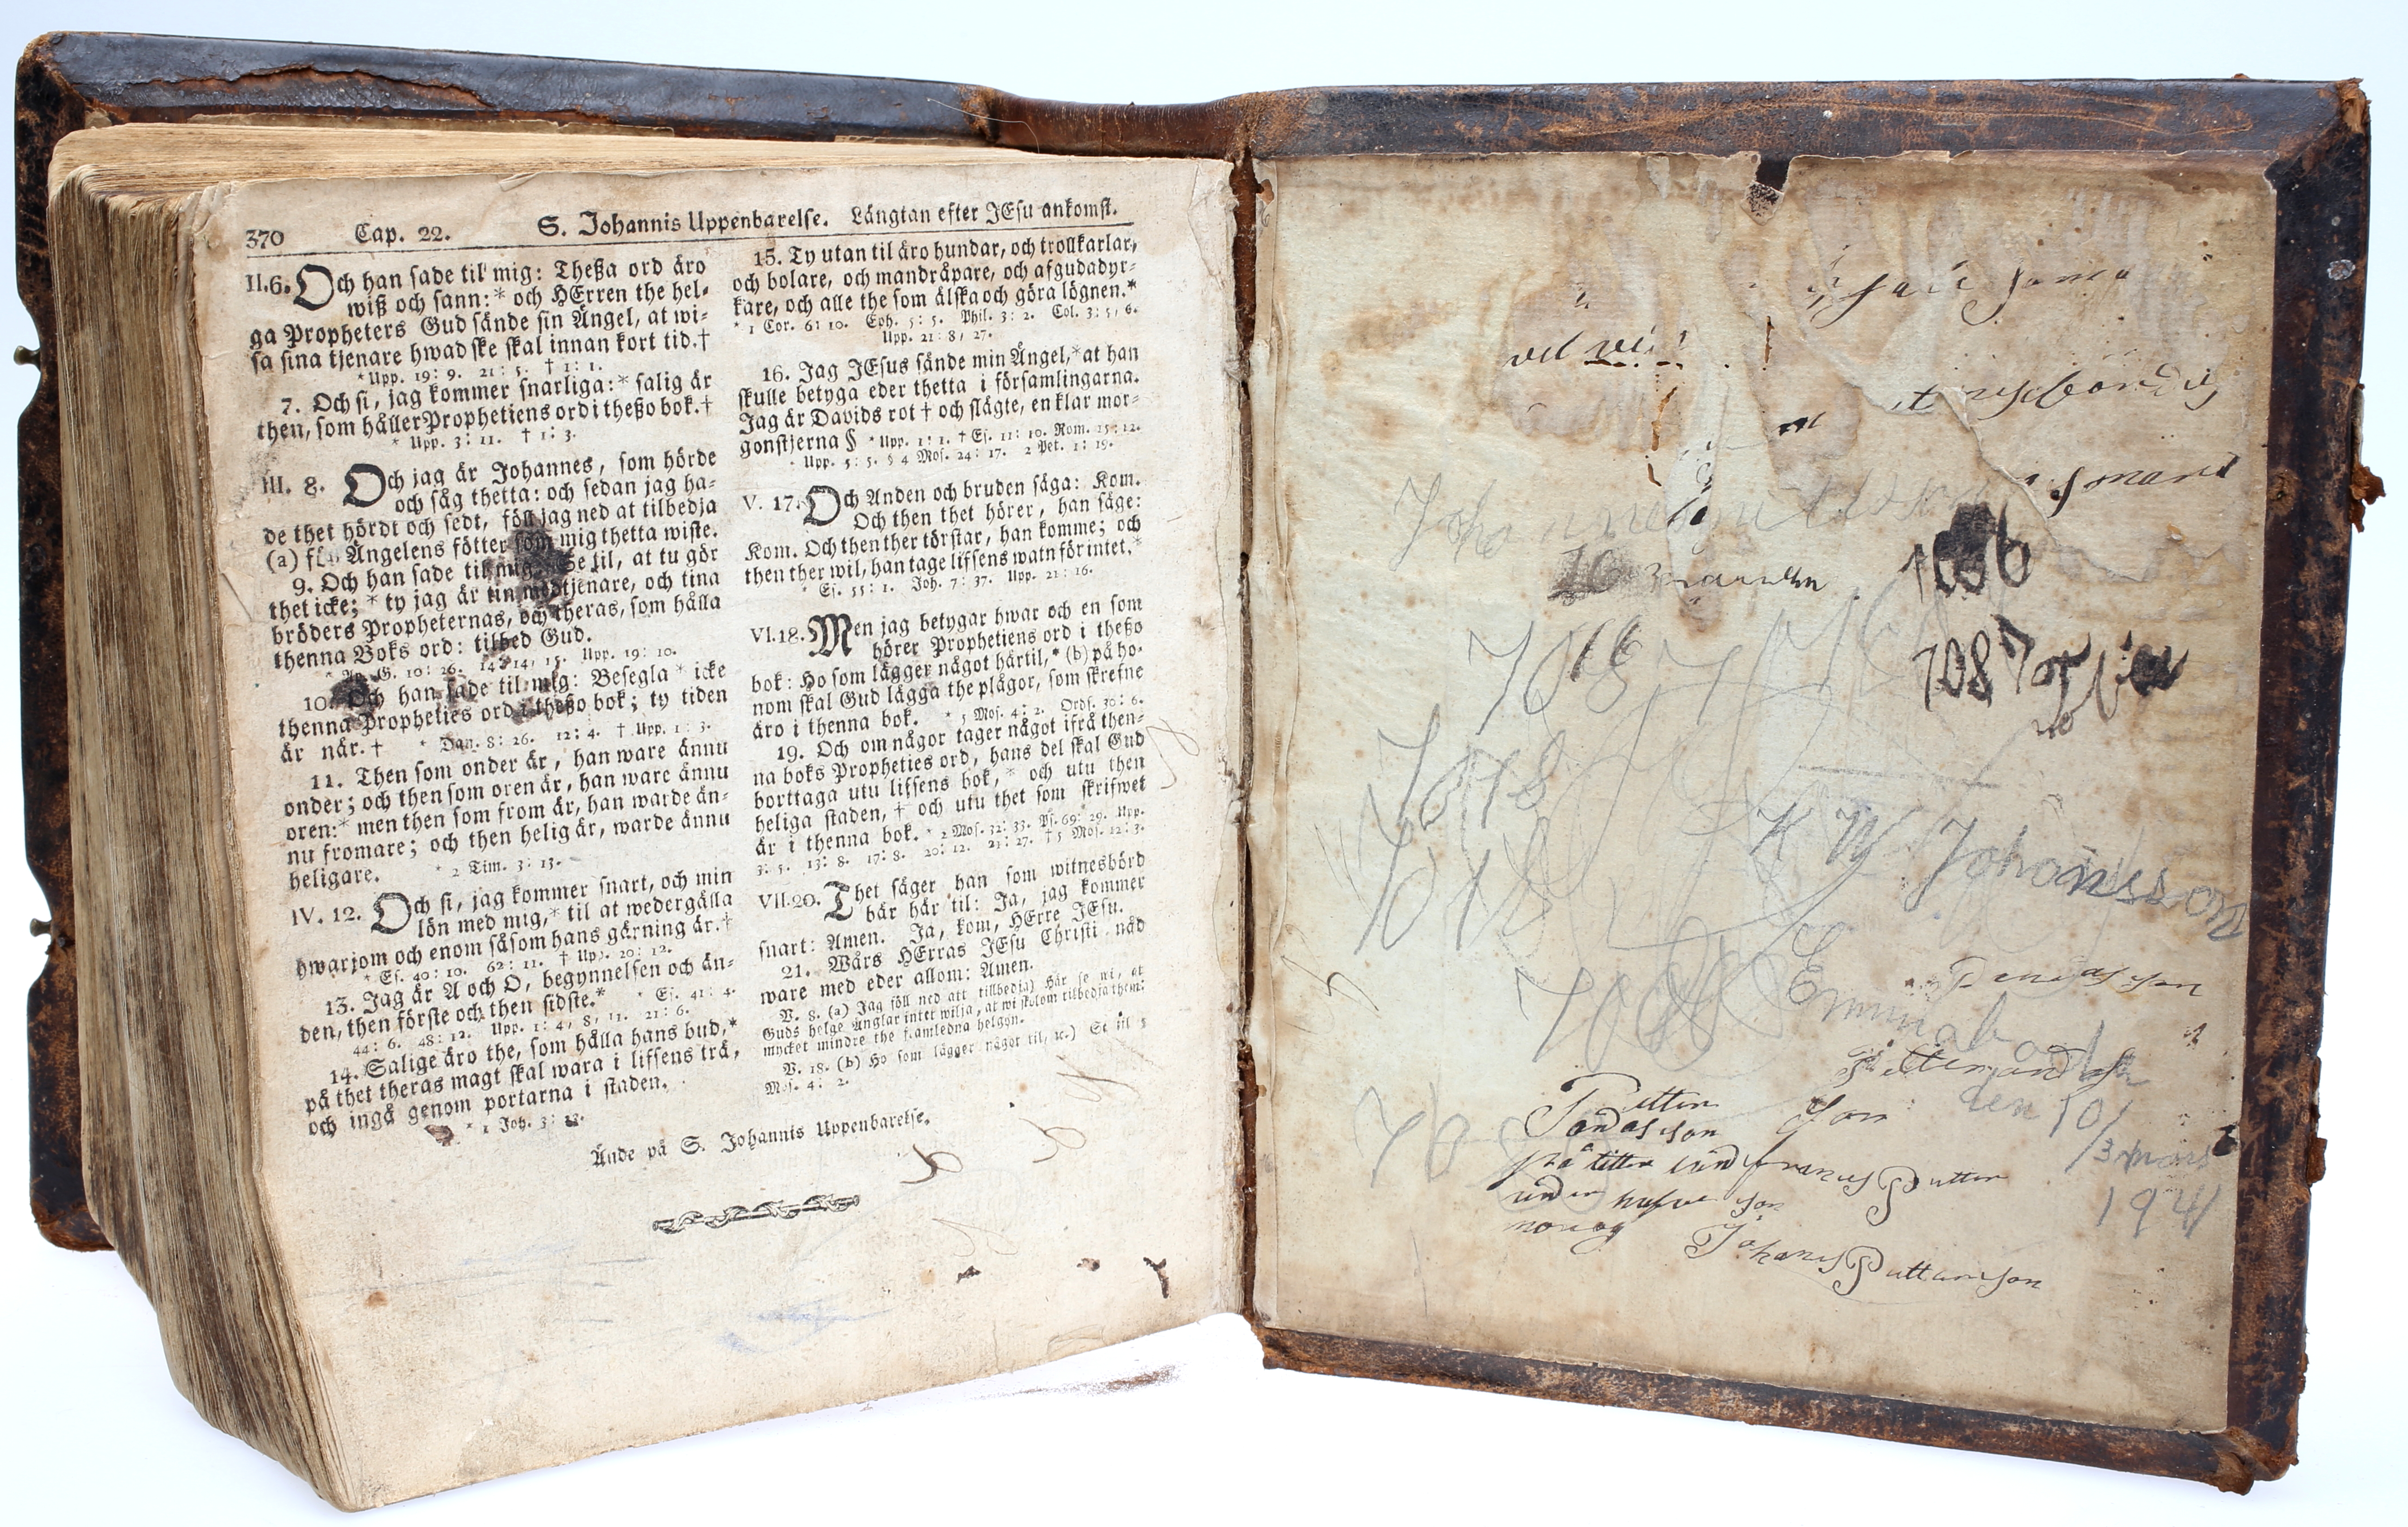 370 Cap. 22. S. Johannis Uppenbarelse. Längtan efter JEsu ankomst.
II.6. Och han sade til mig: Theßa ord äro
wiß och sann:* och HErren the hel-
ga Propheters Gud sände sin Ängel, at wi-
sa sina tjenare hwad ske skal innan kort tid.†
* Upp. 19: 9. 21: 5. † 1: 1.
7. Och si, jag kommer snarliga:* salig är
then, som håller Prophetiens ord i theßo bok.†
* Upp. 3: 11. † 1: 3.
III. 8. Och jag är Johannes, som hörde
och såg thetta: och sedan jag ha-
de thet hördt och sedt, föll jag ned at tilbedja
(a) för Ängelens fötter som mig thetta wiste.
9. Och han sade til mig: Se til, at tu gör
thet icke;* ty jag är tin medtjenare, och tina
bröders Propheternas, och theras, som hålla
thenna Boks ord: tilbed Gud.
* Ap. G. 10: 26. 14: 14, 15. Upp. 19: 10.
10. Och han sade til mig: Besegla* icke
thenna Propheties ord i theßo bok; ty tiden
är när.† * Dan. 8: 26. 12: 4. † Upp. 1: 3.
11. Then som onder är, han ware ännu
onder; och then som oren är, han ware ännu
oren:* men then som from är, han warde än-
nu fromare; och then helig är, warde ännu
heligare. * 2 Tim. 3: 13.
IV. 12. Och si, jag kommer snart, och min
lön med mig,* til at wedergälla
hwarjom och enom såsom hans gärning är.†
* Es. 40: 10. 62: 11. † Upp. 20: 12.
13. Jag är A och O, begynnelsen och än-
den, then förste och then sidste.* * Es. 41: 4.
44: 6. 48: 12. Upp. 1: 4, 8, 11. 21: 6.
14. Salige äro the, som hålla hans bud,*
på thet theras magt skal wara i lifsens trä,
och ingå genom portarna i staden.
* 1 Joh. 3: 23.
15. Ty utan til äro hundar, och trollkarlar,
och bolare, och mandråpare, och afgudadyr-
kare, och alle the som älska och göra lögnen.*
* 1 Cor. 6: 10. Eph. 5: 5. Phil. 3: 2. Col. 3: 5, 6.
Upp. 21: 8, 27.
16. Jag JEsus sände min Ängel,* at han
skulle betyga eder thetta i församlingarna.
Jag är Davids rot † och slägte, en klar mor-
gonstjerna § * Upp. 1: 1. † Es. 11: 10. Rom. 15: 12.
Upp. 5: 5. § 4 Mos. 24: 17. 2 Pet. 1: 19.
V. 17. Och Anden och bruden säga: Kom.
Och then thet hörer, han säge:
Kom. Och then ther törstar, han komme; och
then ther wil, han tage lifsens watn för intet.*
* Es. 55: 1. Joh. 7: 37. Upp. 21: 16.
VI.18. Men jag betygar hwar och en som
hörer Prophetiens ord i theßo
bok: Ho som lägger något härtil,* (b) på ho-
nom skal Gud lägga the plågor, som skrefne
äro i thenna bok. * 5 Mos. 4: 2. Ords. 30: 6.
19. Och om någor tager något ifrå then-
na boks Propheties ord, hans del skal Gud
borttaga utu lifsens bok,* och utu then
heliga staden, † och utu thet som skrifwet
är i thenna bok. * 2 Mos. 32: 33. Ps. 69: 29. Upp.
3: 5. 13: 8. 17: 8. 20: 12. 21: 27. † 5 Mos. 12: 3.
VII.20. Thet säger han som witnesbörd
bär här til: Ja, jag kommer
snart: Amen. Ja, kom, HErre JEsu.
21. Wårs HErras JEsu Christi nåd
ware med eder allom: Amen.
V. 8. (a) Jag föll ned att tillbedja) Här se wi, at
Guds helge Änglar intet wilja, at wi skolom tilbedja them:
mycket mindre the framledna helgon.
V. 18. (b) Ho som lägger något til, &c.) Se til 5
Mos. 4: 2.
Ände på S. Johannis Uppenbarelse.
vel
Johannes
16
1086
7016
7087
7018
K W Johansson
7018
Emma
den 10/
Petter Son
/3 mars
1941
Johanes Pettersson